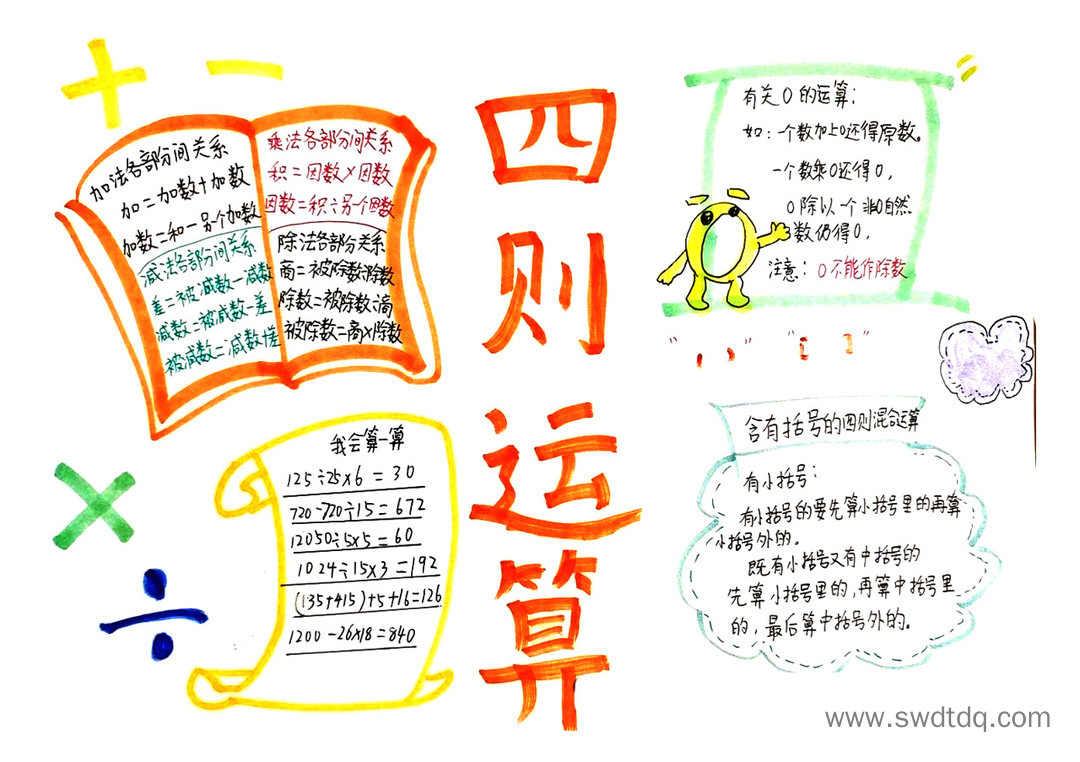 四则运算
加法各部分间关系
加=加数+加数
加数=和-另个加数
减法各部分间关系
差=被减数-减数
减数=被减数-差
被减数=减数+差
乘法各部分间关系
积=因数×因数
因数=积÷另个因数
除法各部分关系
商=被除数÷除数
除数=被除数÷商
被除数=商×除数
我会算一算
125÷25×6=30
720-720÷15=672
12050÷5×5=60
1024÷15×3=192
(135+415)+5+16=126
1200-26×18=840
有关0的运算:
如:一个数加上0还得原数。
一个数乘0还得0,
0除以一个非0自然
数仍得0,
注意:0不能作除数
"( )" "[ ]
含有括号的四则混合运算
有小括号:
有小括号的要先算小括号里的再算
小括号外的。
既有小括号又有中括号的
先算小括号里的,再算中括号里
的,最后算中括号外的。
www.swdtdq.com